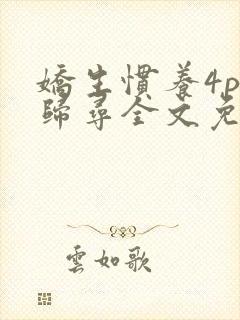 嬌生慣養4p
歸尋全文免
雲如歌